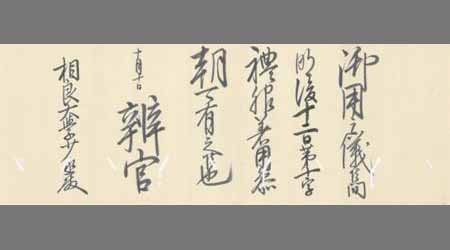 御用之儀候間
明後十二日第十字
禮服着用参
朝可有之候也
十月十日
辨官
相良 殿